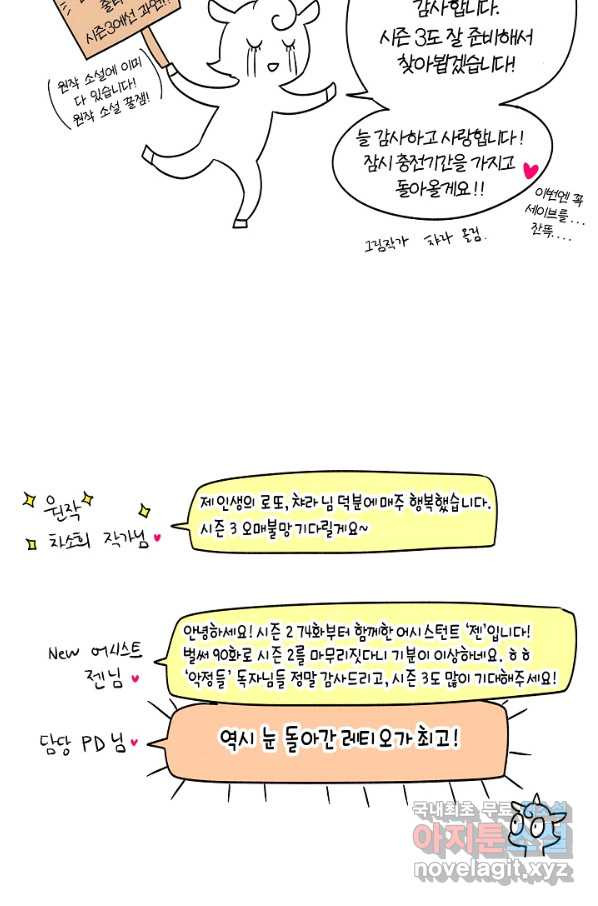 시즌3에선 과연!!
(원작 소설에 이미
다 있습니다!
원작 소설 꿀잼!)
감사합니다.
시즌 3도 잘 준비해서
찾아뵙겠습니다!
늘 감사하고 사랑합니다!
잠시 충전기간을 가지고
돌아올게요!!
이번엔 꼭
세이브를...
잔뜩....
그림작가 챠라 올림.
원작
차소희 작가님
제 인생의 로또, 챠라 님 덕분에 매주 행복했습니다.
시즌 3 오매불망 기다릴게요~
New 어시스트
젠님
안녕하세요! 시즌 2 74화부터 함께한 어시스턴트 '젠'입니다!
벌써 90화로 시즌 2를 마무리짓다니 기분이 이상하네요. ㅎㅎ
'악정들' 독자님들 정말 감사드리고, 시즌 3도 많이 기대해주세요!
담당 PD님
역시 눈 돌아간 레티오가 최고!
국내최초 무료
아지툰소설
novelagit.xyz